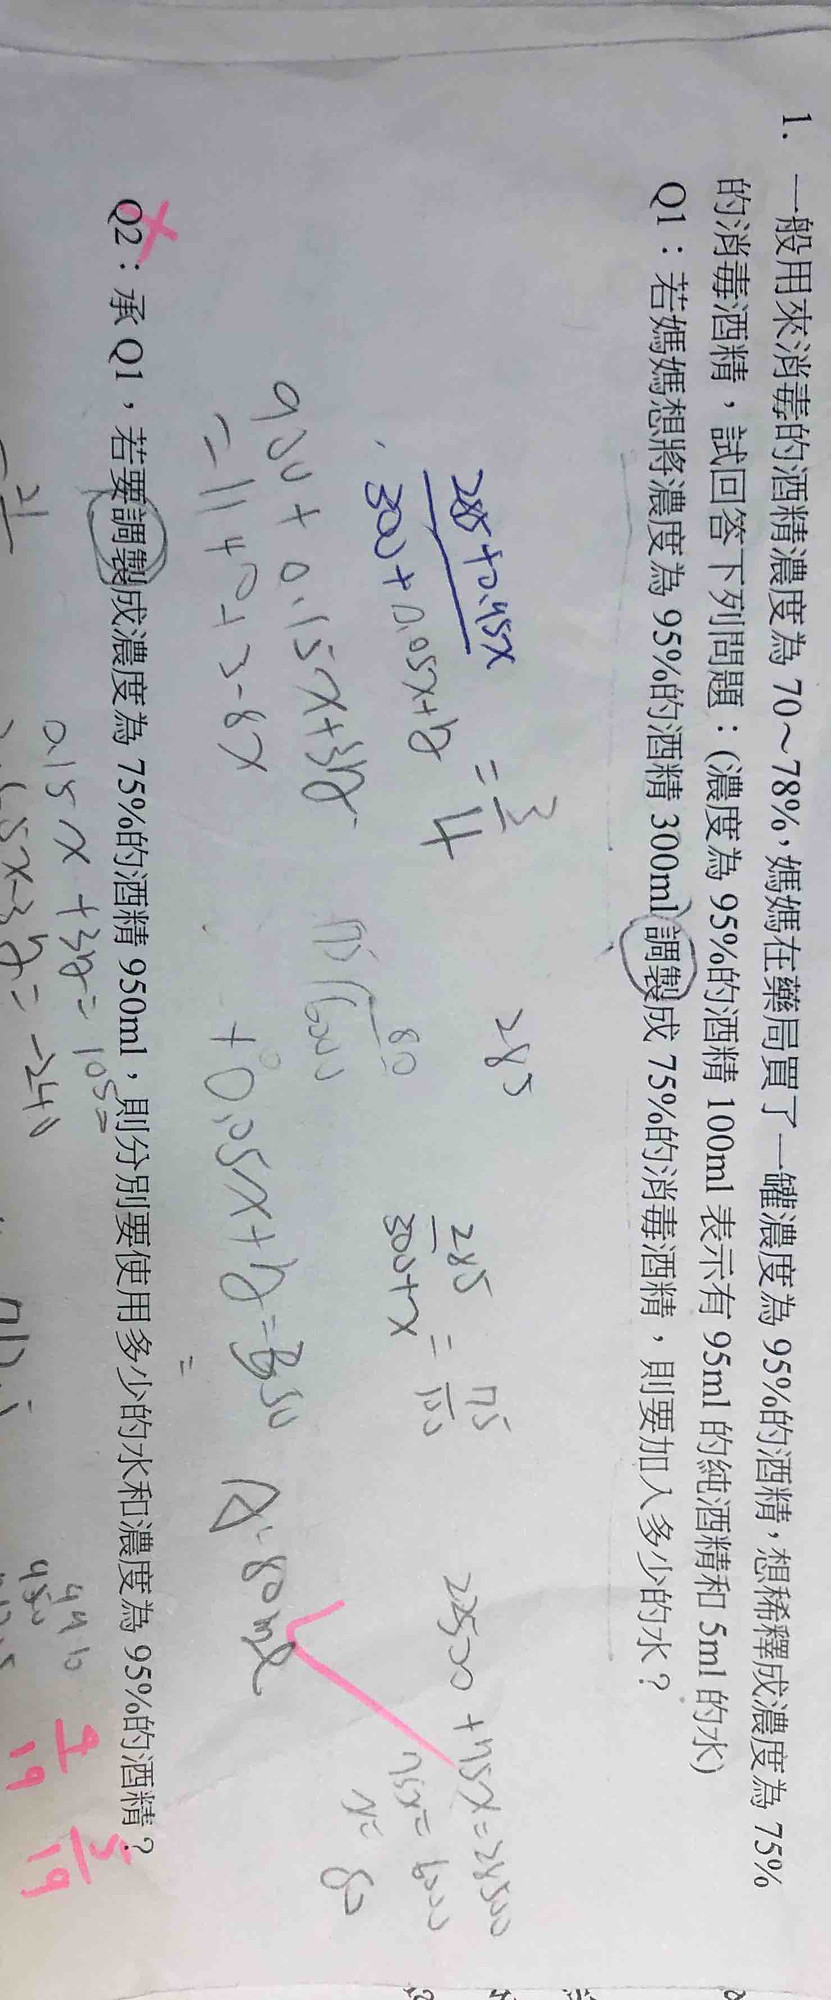 1. 一般用來消毒的酒精濃度為 70～78%，媽媽在藥局買了一罐濃度為 95%的酒精，想稀釋成濃度為 75%
的消毒酒精，試回答下列問題：(濃度為 95%的酒精 100ml 表示有 95ml 的純酒精和 5ml 的水)
Q1：若媽媽想將濃度為 95%的酒精 300ml 調製成 75%的消毒酒精，則要加入多少的水？
285
285+0.95x
300+0.05x+y
=
3
4
285
300+x
=
75
100
22500+75x=28500
75x=6000
x=80
80
75
6000
900+0.15x+3y
=1140+3.8x
+0.05x+y=
y=80ml
Q2：承 Q1，若要調製成濃度為 75%的酒精 950ml，則分別要使用多少的水和濃度為 95%的酒精？
0.15x+3y=1050
=-240